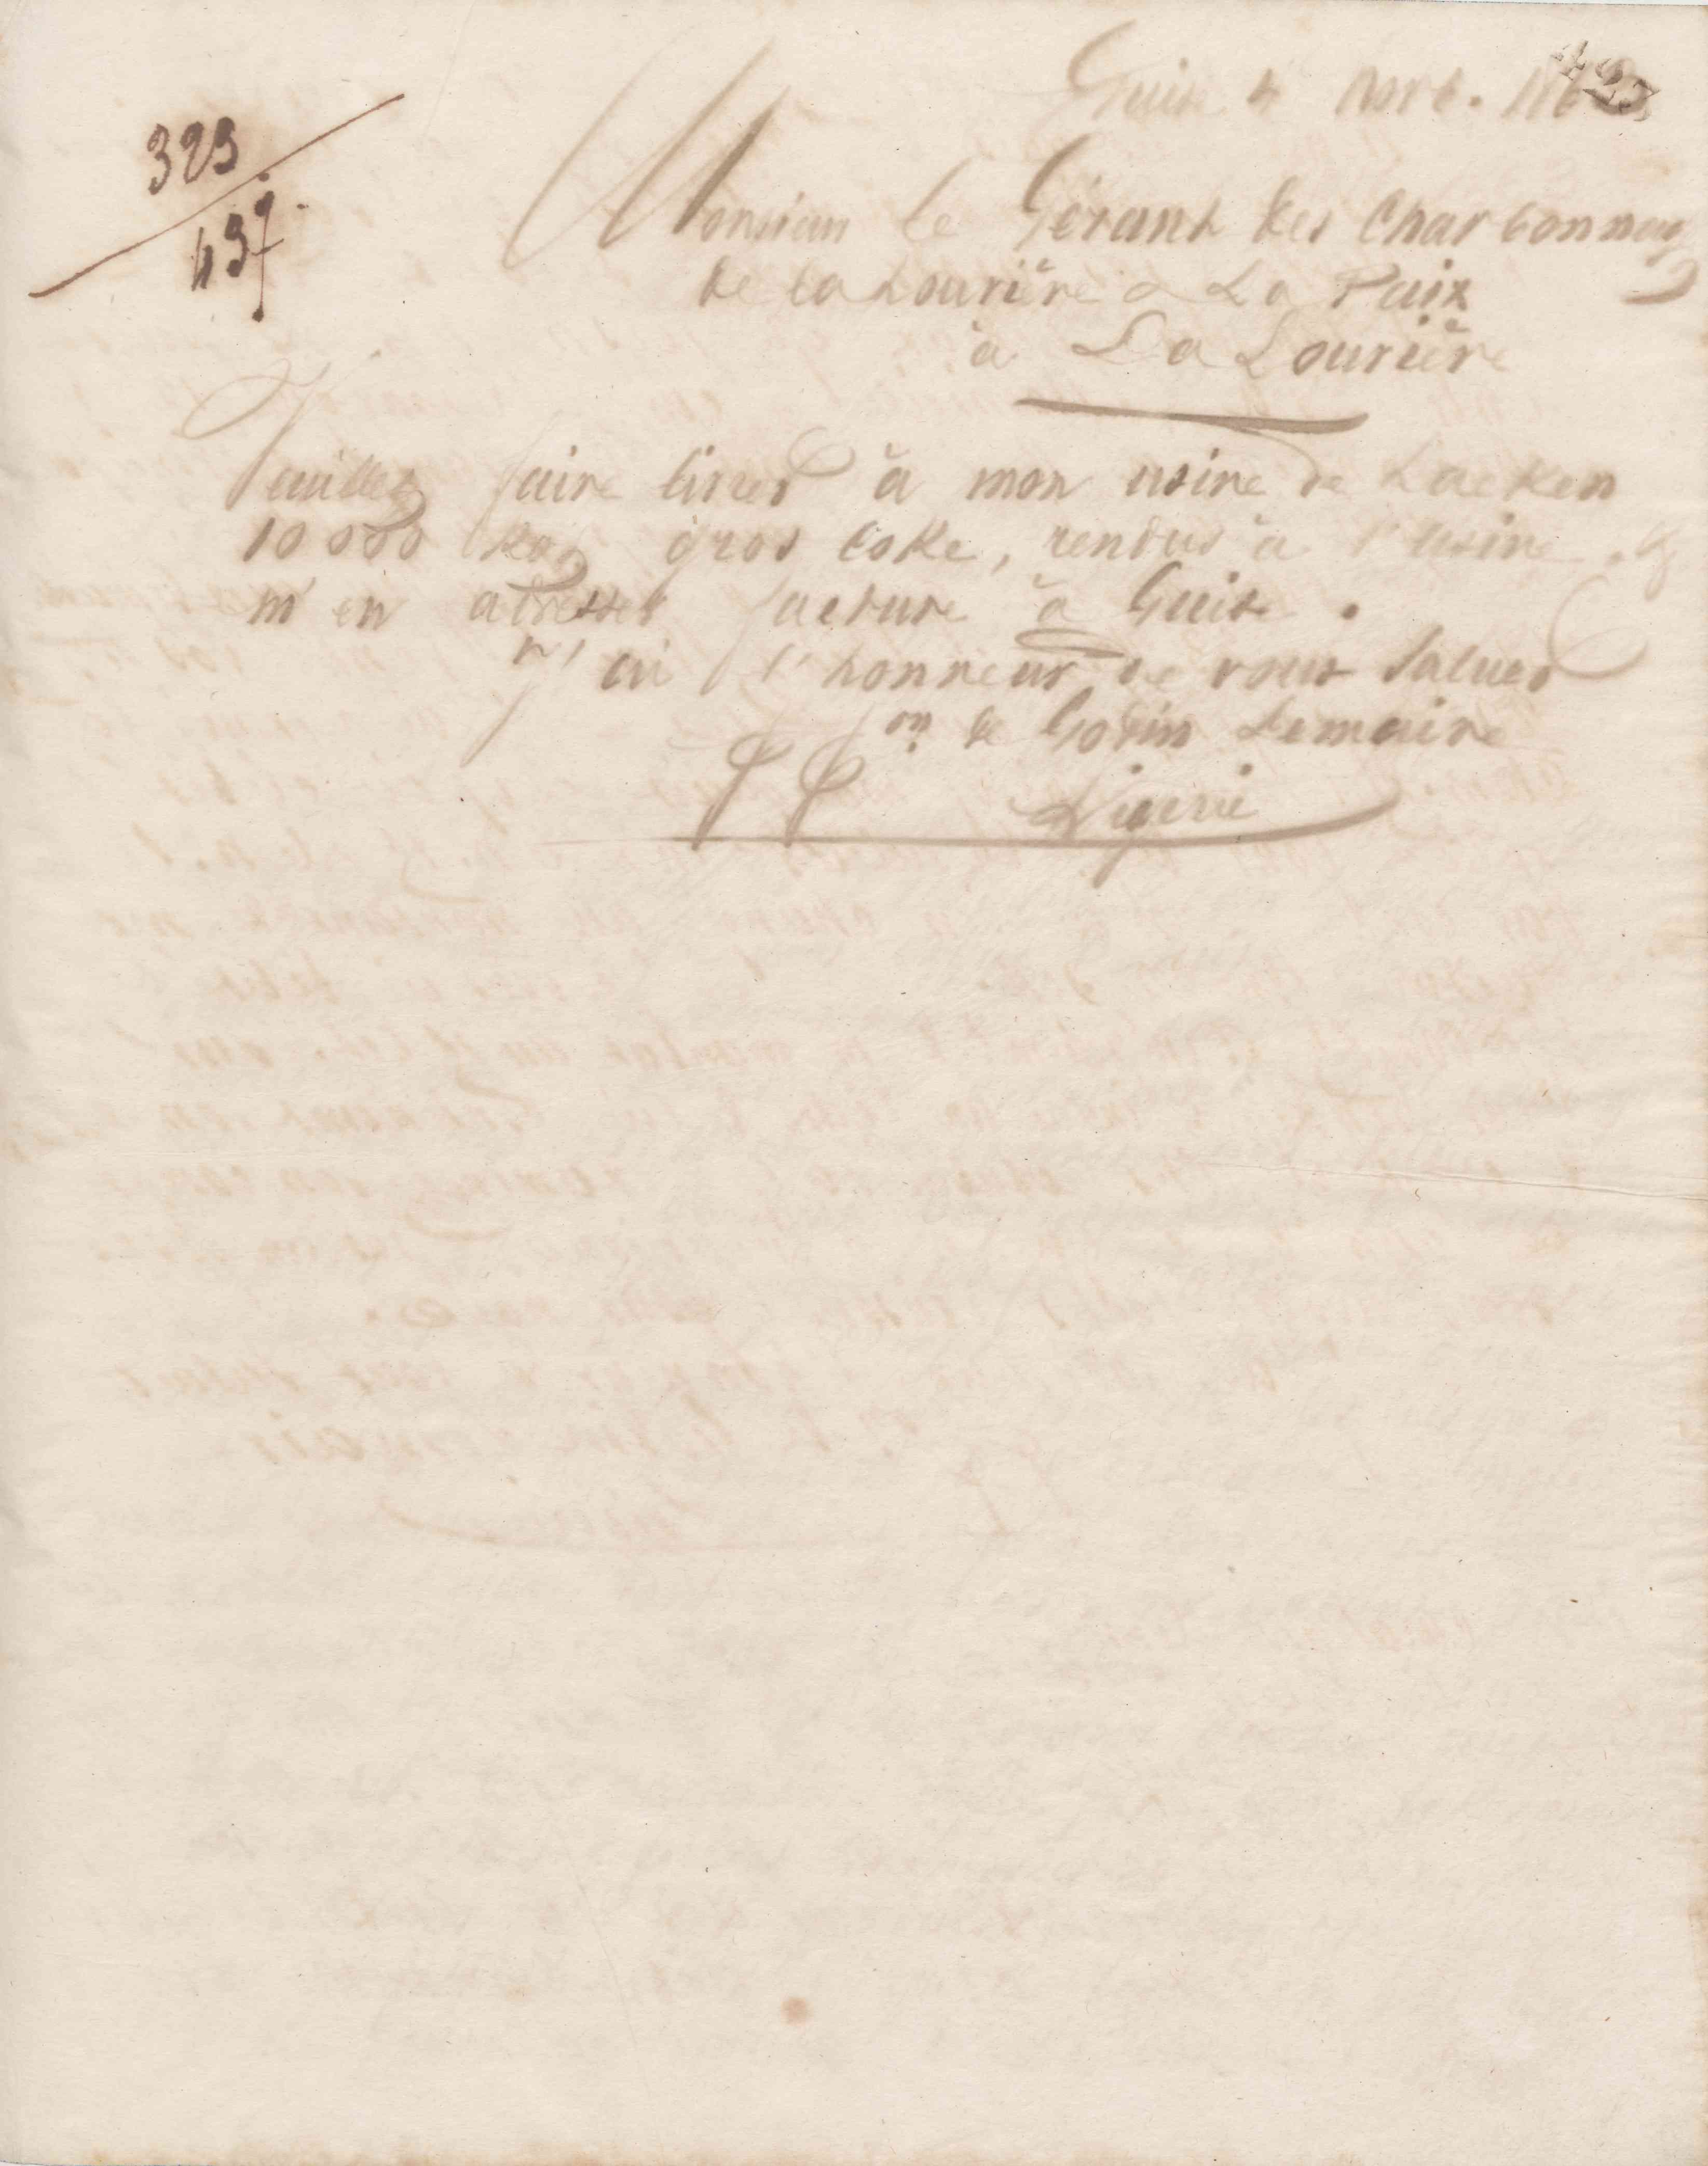 Guise 4 Novb.
323
437
Monsieur le Gérant des Charbonnag
de la Louvière & La Paix
à La Louvière
Veuillez faire livrer à mon usine de Laeken
10 000 kog gros coke, rendus à l'usine. &
m'en adresser facture à Guise.
J'ai l'honneur de vous saluer
pon de Godin Lemaire